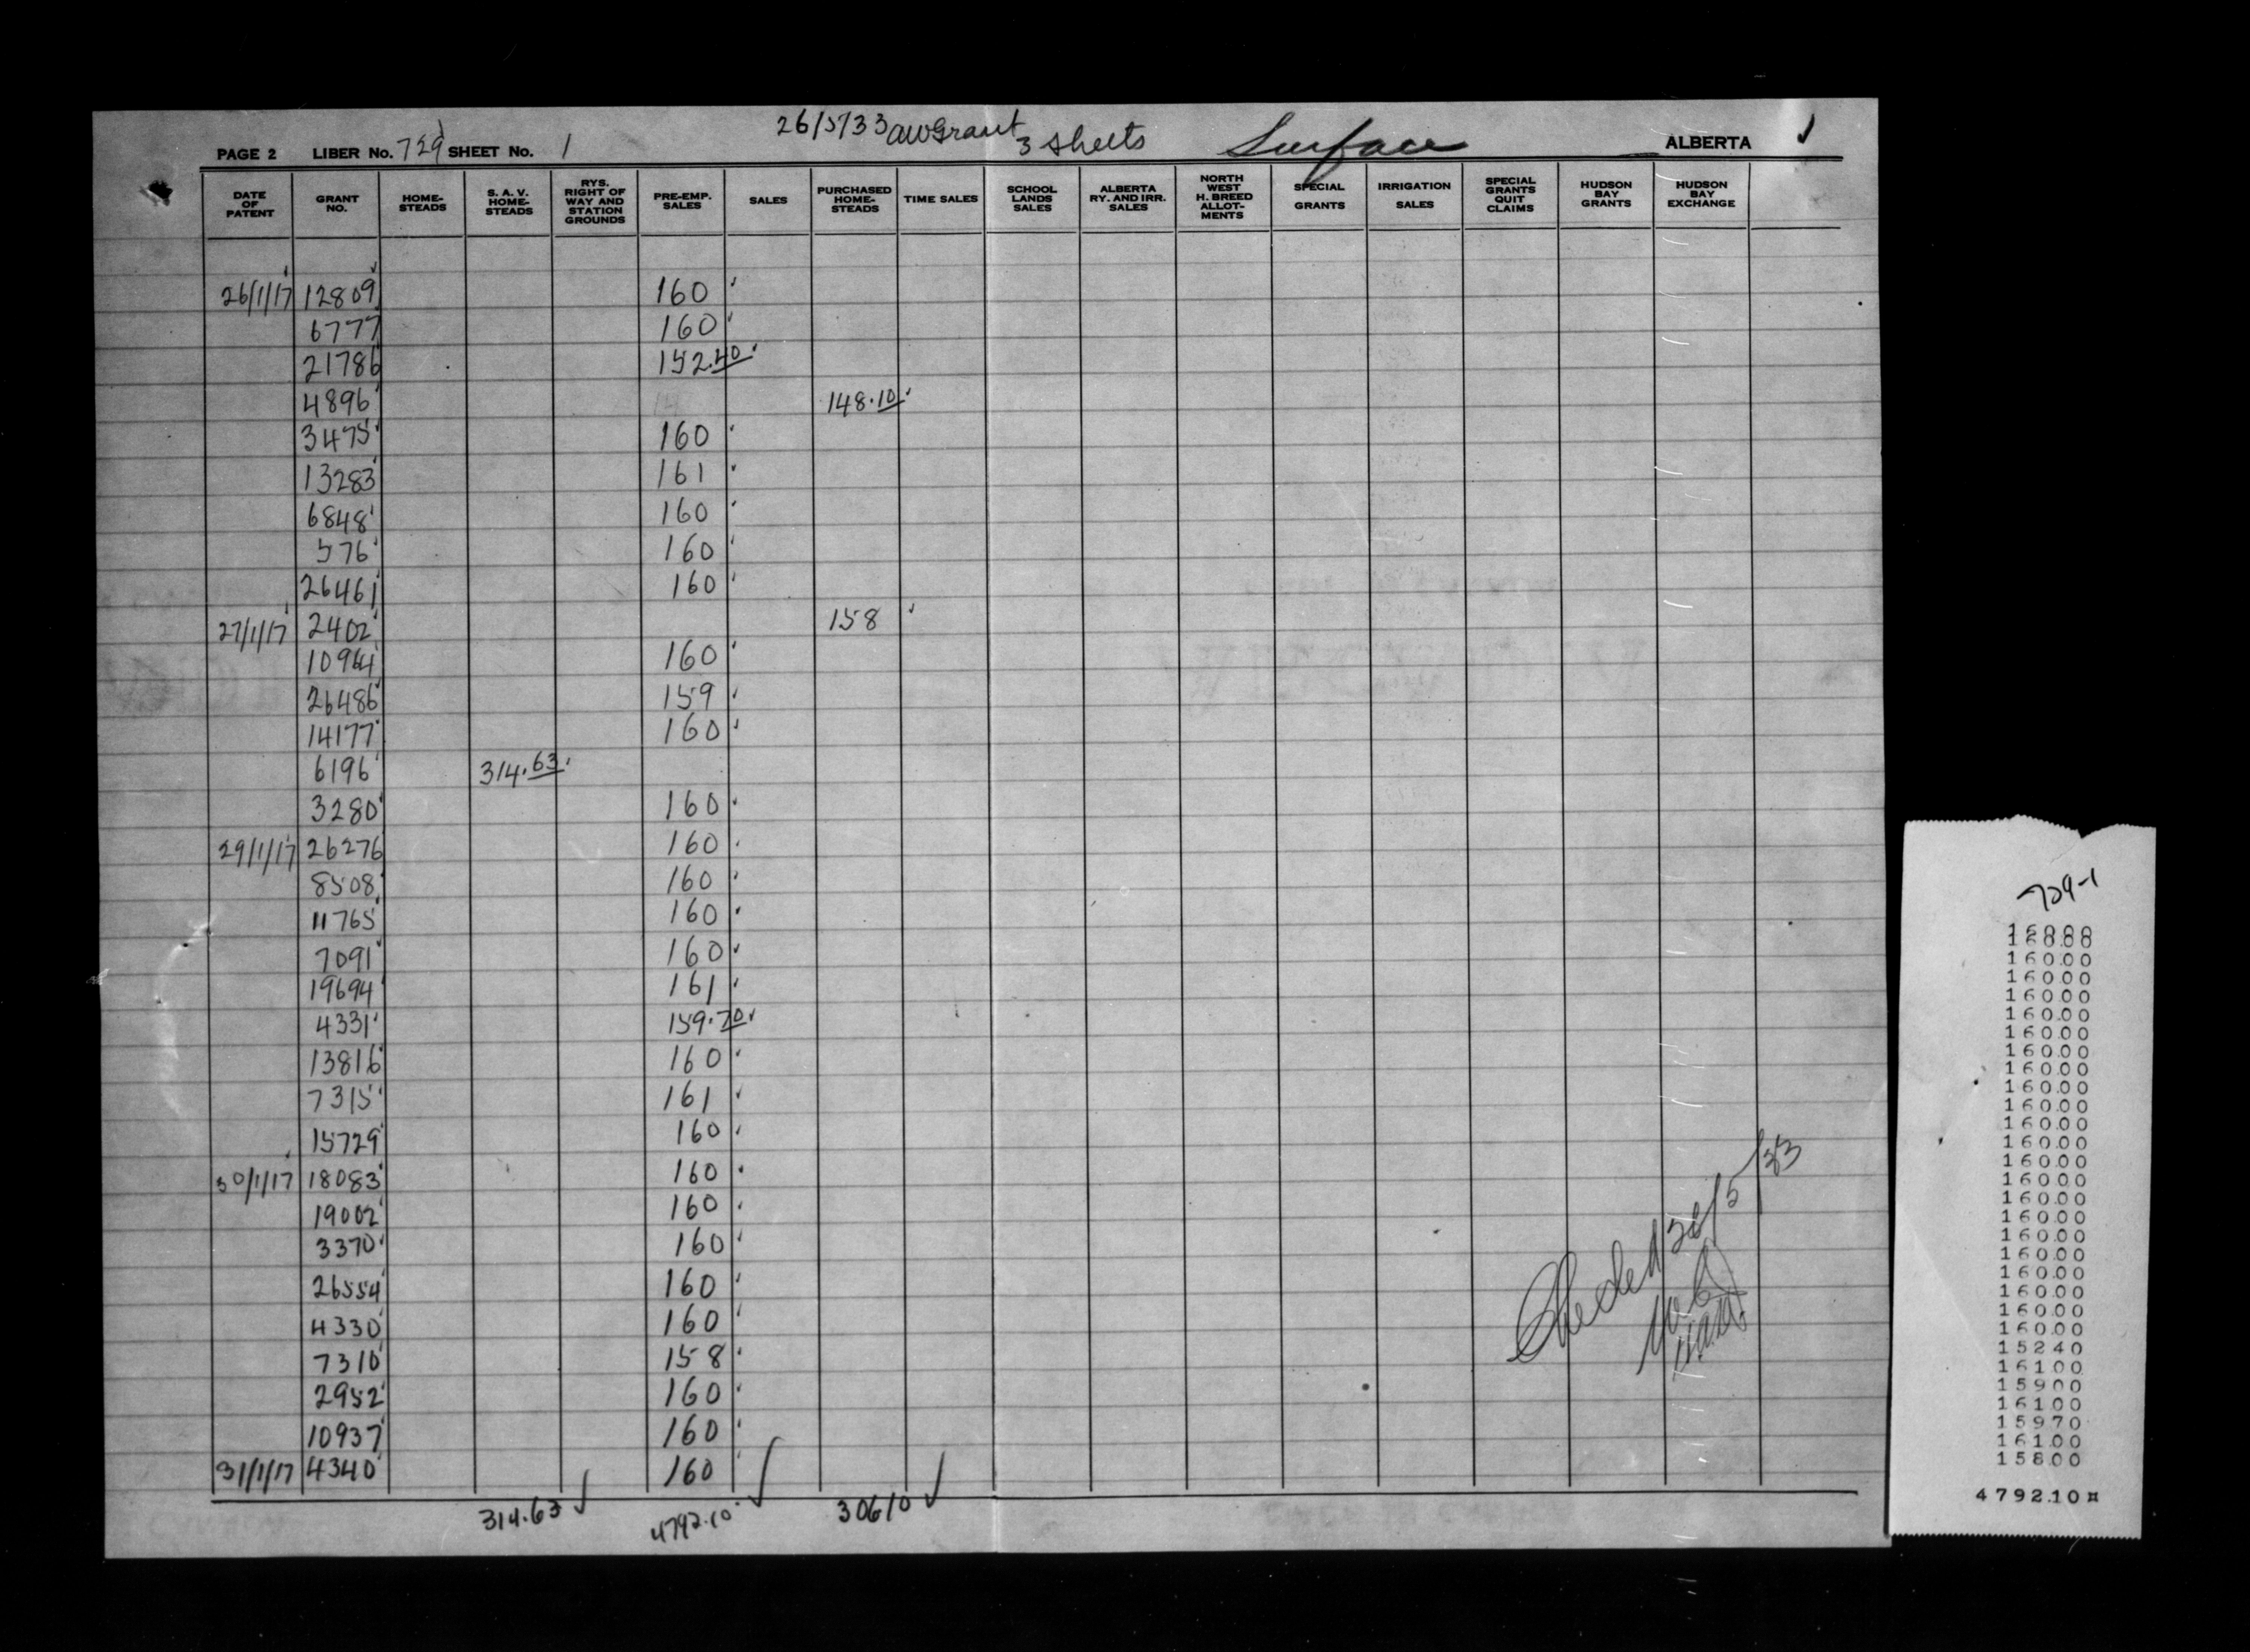 26/5/33 AWGrant 3 sheets Surface
PAGE 2 LIBER No. 729 SHEET No. 1 ALBERTA
DATE OF PATENT GRANT NO. HOME-STEADS S. A. V. HOME-STEADS RYS. RIGHT OF WAY AND STATION GROUNDS PRE-EMP. SALES SALES PURCHASED HOME-STEADS TIME SALES SCHOOL LANDS SALES ALBERTA RY. AND IRR. SALES NORTH WEST H. BREED ALLOT-MENTS SPECIAL GRANTS IRRIGATION SALES SPECIAL GRANTS QUIT CLAIMS HUDSON BAY GRANTS HUDSON BAY EXCHANGE
26/1/17 12809 160
6777 160
21786 152.40
4896 148.10
3475 160
13283 161
6848 160
576 160
26461 160
27/1/17 2402 158
10944 160
26486 159
14177 160
6196 314.63
3280 160
29/1/17 26276 160
8508 160
11765 160
7091 160
19694 161
4331 159.70
13816 160
7315 161
15729 160
30/1/17 18083 160
19002 160
3370 160
26554 160
4330 160
7310 158
2952 160
10937 160
31/1/17 4340 160
314.63 4792.10 30610
Checked 26/5/33
729-1
160.00
160.00
160.00
160.00
160.00
160.00
160.00
160.00
160.00
160.00
160.00
160.00
160.00
160.00
160.00
160.00
160.00
160.00
160.00
160.00
160.00
160.00
152.40
161.00
159.00
161.00
159.70
161.00
158.00
4792.10¤